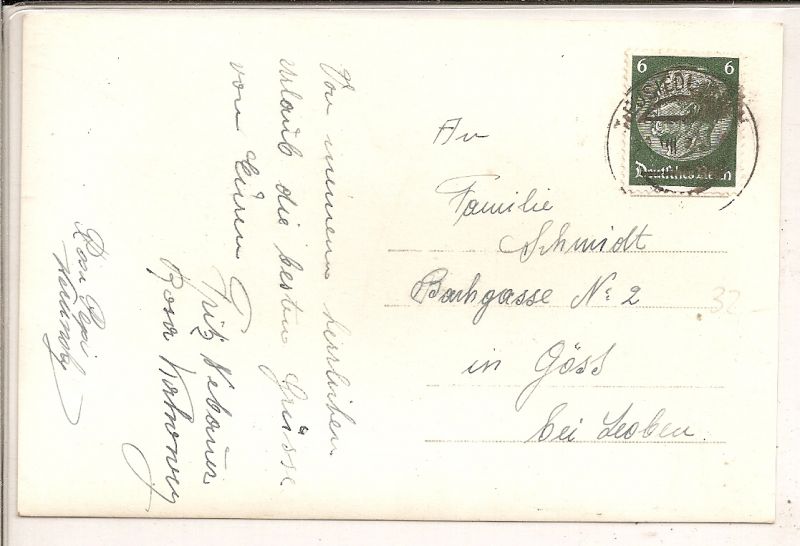 Von meinem herrlichen
Urlaub die besten Grüsse
von Euren
Fritz
Rosa
6 6
Deutsches Reich
An
Familie
Schmidt
Bachgasse No 2
in Göss
bei Leoben.
32-